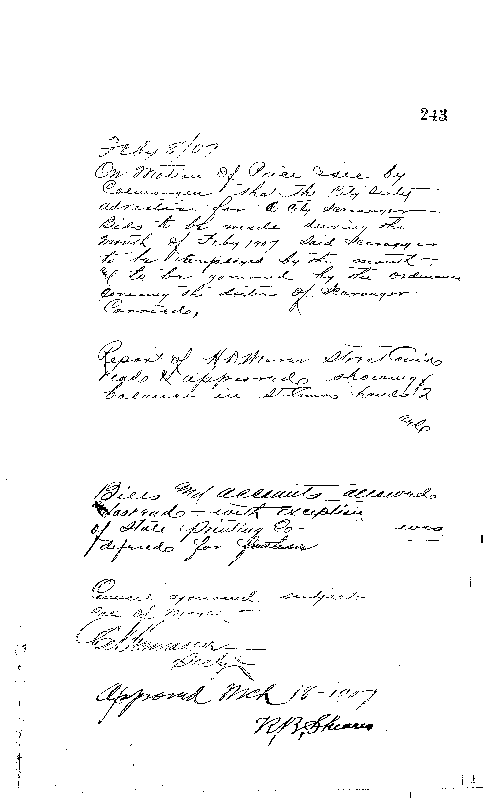 243
Feby 8/07
On Motion of Price Secd by
that the City Secty
advertise for a City Scavenger
Bids to be made during the
month of Feby 1907 Said Scavenger
to be employed by the month
& to be governed by the ordinance
the duties of Scavenger
Carried,
Report of H D Street Comr
read & approved showing
balance in St Comr hands 2
Bills and accounts allowed
as read - with exception
of State Printing Co - was
deferred for
Council adjourned subject
of Mayor
Secty
Approved Mch 18 - 1907
R. B. Shearer